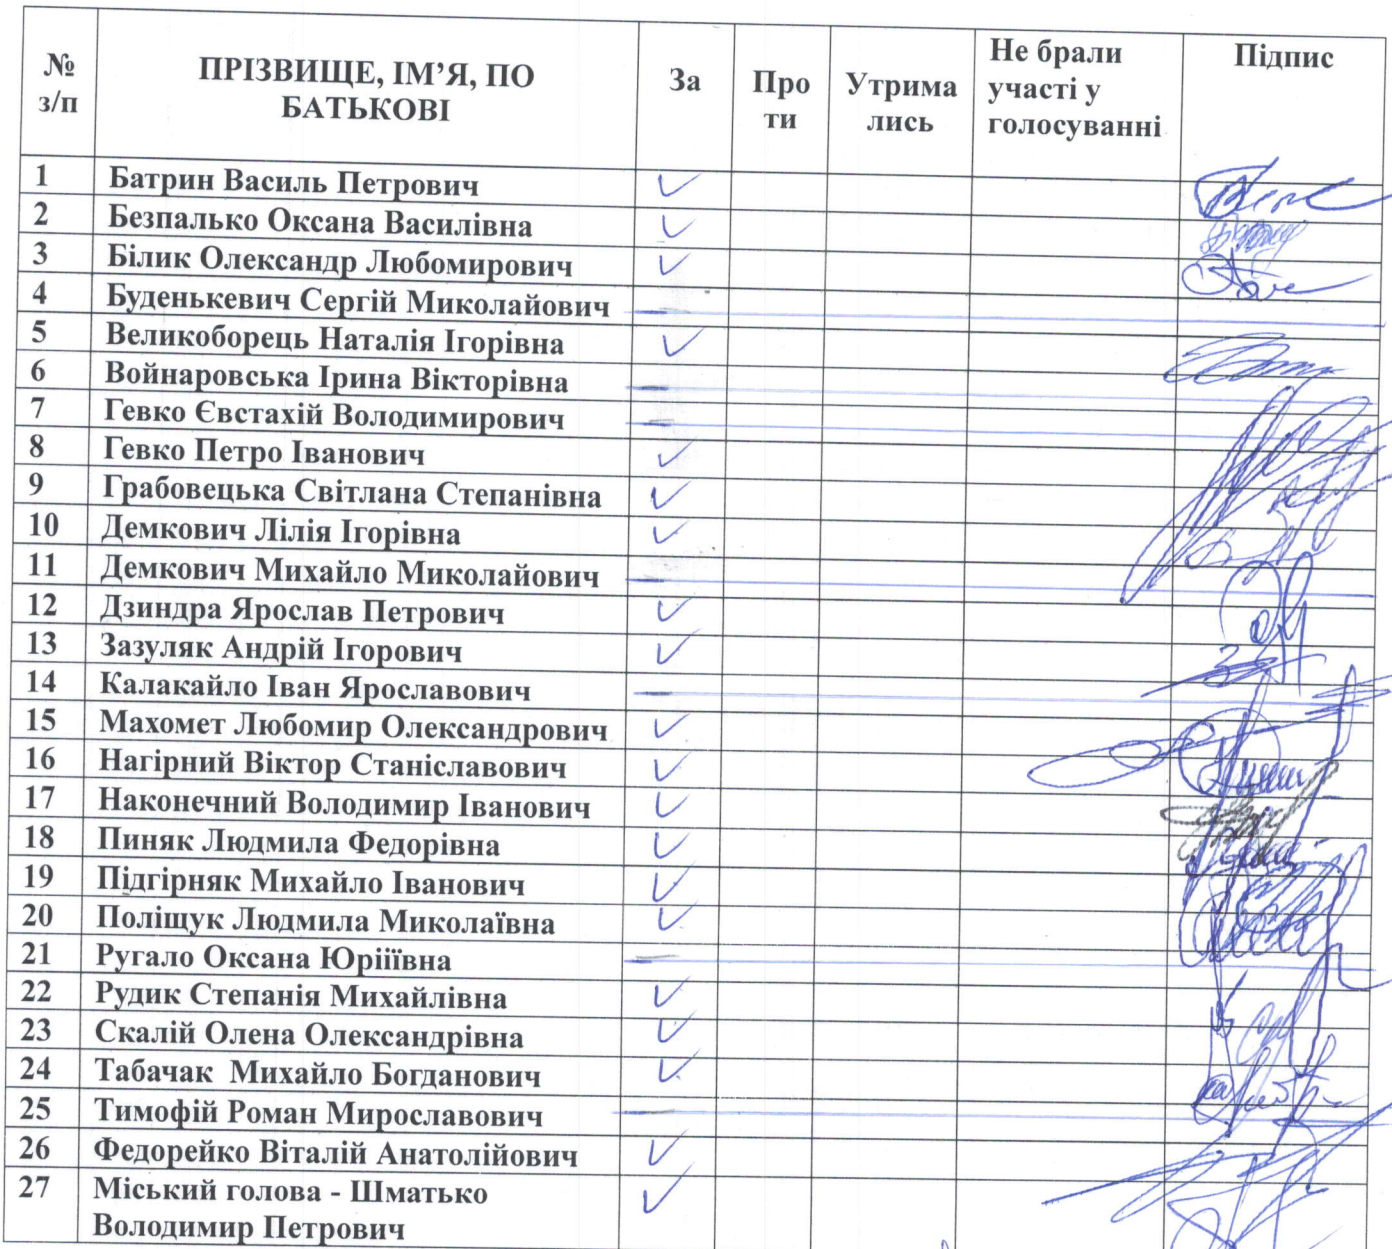 № з/п ПРІЗВИЩЕ, ІМ’Я, ПО БАТЬКОВІ За Про ти Утрима лись Не брали участі у голосуванні Підпис
1 Батрин Василь Петрович ✓
2 Безпалько Оксана Василівна ✓
3 Білик Олександр Любомирович ✓
4 Буденькевич Сергій Миколайович –
5 Великоборець Наталія Ігорівна ✓
6 Войнаровська Ірина Вікторівна –
7 Гевко Євстахій Володимирович –
8 Гевко Петро Іванович ✓
9 Грабовецька Світлана Степанівна ✓
10 Демкович Лілія Ігорівна ✓
11 Демкович Михайло Миколайович –
12 Дзиндра Ярослав Петрович ✓
13 Зазуляк Андрій Ігорович ✓
14 Калакайло Іван Ярославович –
15 Махомет Любомир Олександрович ✓
16 Нагірний Віктор Станіславович ✓
17 Наконечний Володимир Іванович ✓
18 Пиняк Людмила Федорівна ✓
19 Підгірняк Михайло Іванович ✓
20 Поліщук Людмила Миколаївна ✓
21 Ругало Оксана Юріїївна –
22 Рудик Степанія Михайлівна ✓
23 Скалій Олена Олександрівна ✓
24 Табачак Михайло Богданович ✓
25 Тимофій Роман Мирославович –
26 Федорейко Віталій Анатолійович ✓
27 Міський голова - Шматько ✓
Володимир Петрович